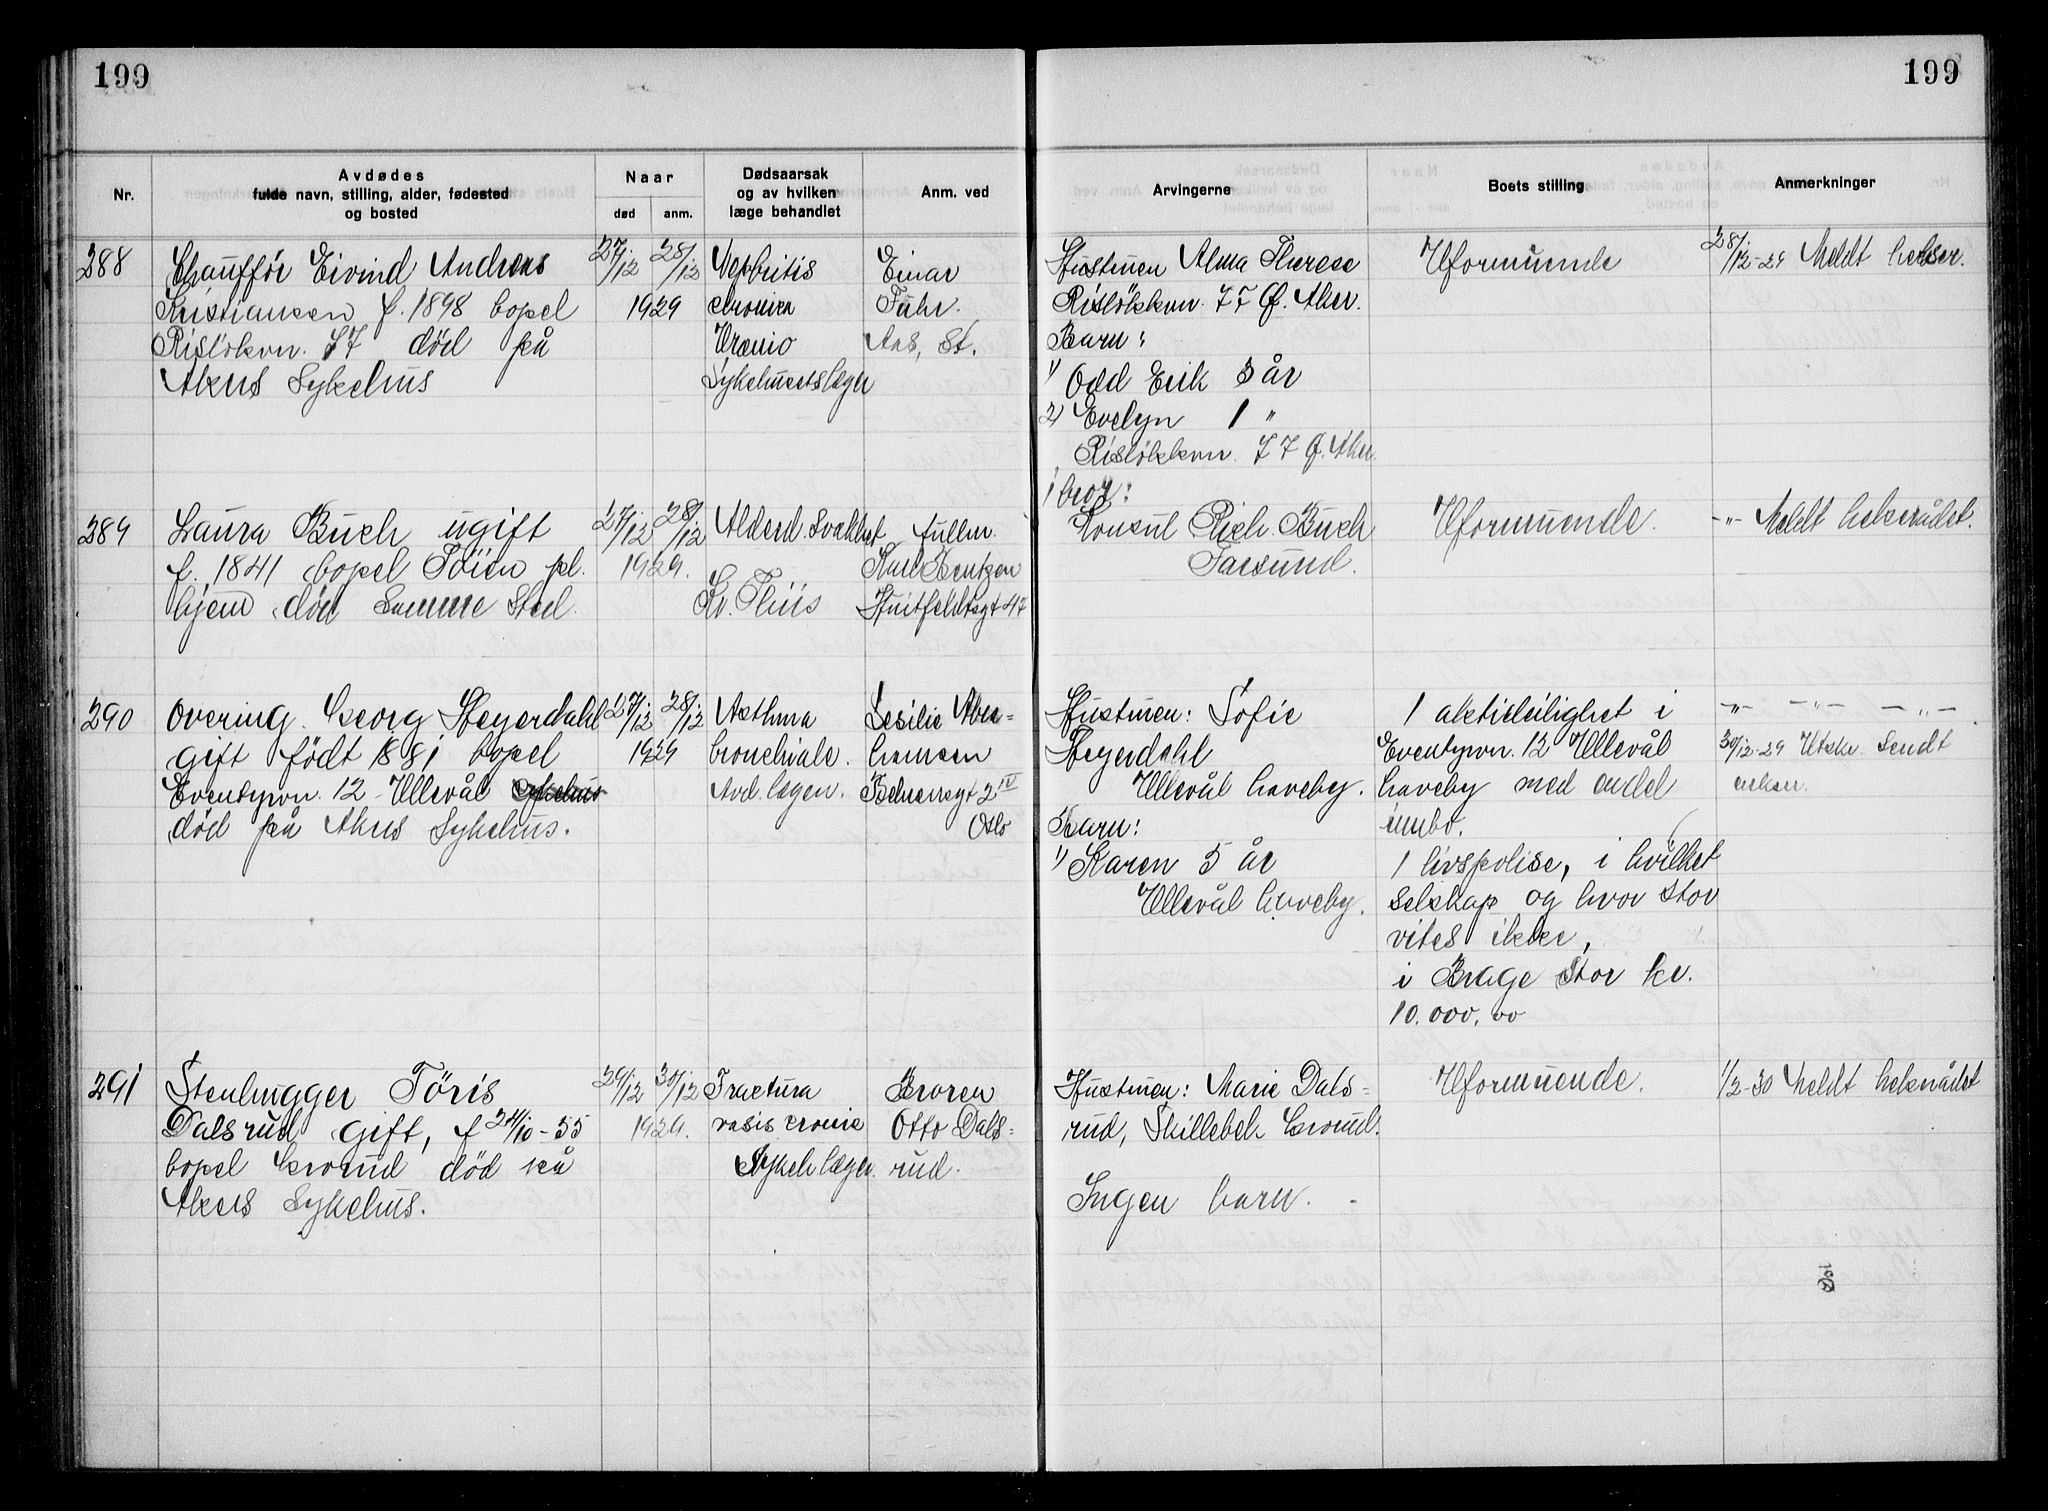 199
199
Nr.
Avdødes
fulde navn, stilling, alder, fødested
og bosted
Naar
død
anm.
Dødsaarsak
og av hvilken
læge behandlet
Anm. ved
Arvingerne
Boets stilling
Anmerkninger
288
Chauffør Eivind Andreas
Kristiansen f. 1898 bopel
Risløkvn. 27 død på
Akers Sykehus
27/12 28/12
1929
Nephritis
chronica
Uræmio
Sykehusetslæger
Einar
Fuhr.
Aas, St.
Hustruen Alma Therese
Risløkkvn. 27 Ø. Aker.
Barn:
1) Odd Erik 3 år
2) Evelyn 1 "
Risløkkvn. 27 Ø. Aker.
Uformuende
28/12-29 Meldt helser.
289
Laura Buch ugift
f. 1841 bopel Töien pl.
hjem død Samme Sted.
27/12 28/12
1929.
Alderd. Svakhet
Kr. Thiis
fullm.
Karl Bentzen
Huitfeldtsgt 47
1 bror:
Konsul Rich. Buch
Farsund.
Uformuende.
-"- Meldt helserådet.
290
Overing. Georg Heyerdahl
gift født 1881 bopel
Eventyrvn. 12 Ullevål
død på Akers Sykehus.
27/12 28/12
1929
Asthma
bronchiale.
Avd. lægen.
Cecilie Abra=
hamsen
Behrensgt 2 IV
Oslo
Hustruen: Sofie
Heyerdahl
Ullevål haveby.
Barn:
1) Karen 5 år
Ullevål haveby.
1 aktieleilighet i
Eventyrvn. 12 Ullevål
haveby med endel
innbo.
1 livspolise, i hvilket
selskap og hvor stor
vites ikke,
i Brage Stor kr.
10.000,00
-"- -"- -"-
30/12-29 Utskr. Sendt
291
Stenhugger Töris
Dalsrud gift, f 24/10-55
bopel Grorud død på
Akers Sykehus.
29/12 30/12
1929.
Fractura
basis cranie
Sykeh lægen.
Broren
Otto Dals=
rud.
Hustruen: Marie Dals=
rud, Skillebek Grorud.
Ingen barn.
Uformuende.
1/2-30 Meldt helserådet